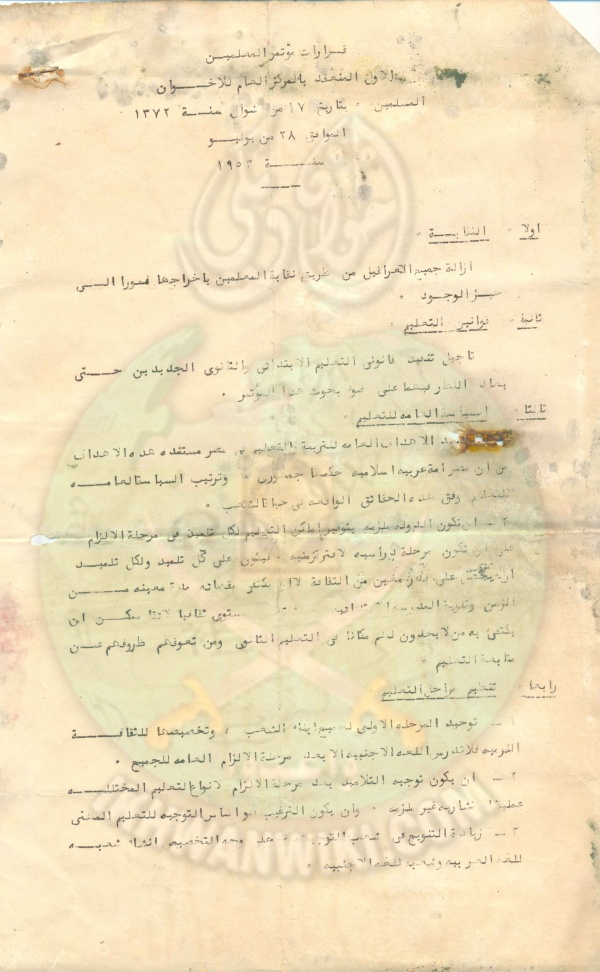 قرارات مؤتمر المعلمين
الاول المنعقد بالمركز العام للاخوان
المسلمين ، بتاريخ ١٧ من شوال سنة ١٣٧٢
الموافق ٢٨ من يونيو
سنة ١٩٥٣
اولا " النقابة "
ازالة جميع العراقيل من طريق نقابة المعلمين باخراجها فورا الى
حيز الوجود "
ثانية " قوانين التعليم
تأجيل تنفيذ قانونى التعليم الابتدائى والثانوى الجديدين حتى
يعاد النظر فيهما على ضوء بحوث هذا المؤتمر "
ثالثا " السياسة العامه للتعليم "
الاهداف العامه للتربية والتعليم فى مصر مستمده هذه الاهداف
من ان مصر امة عربيه اسلاميه حكمها جمهورى " وترتيب السياسة العامه
للتعليم وفق هذه الحقائق الواقعه فى حياة الشعب "
٢ ــ ان تكون الدوله ملزمه بتوفير اماكن التعليم لكل تلميذ فى مرحلة الالزام
على ان تكون مرحلة دراسيه لا فترة زمنيه ، ليكون على كل تلميذ ولكل تلميذ
ان يحصل على قدر معين من الثقافة لا ان يكتفى بقضائه مدة معينه من
الزمن وتقوية المدرسه مستوى ثقافيا لائقا يمكن ان
يكتفى به من لا يجدون لهم مكانا فى التعليم الثانوى ومن تعوقهم ظروفهم عن
متابعة التعليم "
رابعا " تنظيم مراحل التعليم
١ ــ توحيد المرحله الاولى لجميع ابناء الشعب ، وتخصيصها للثقافة
القوميه فلا تدرس اللغه الاجنبيه الا بعد مرحلة الالزام العامه للجميع "
٢ ــ ان يكون توجيه التلاميذ بعد مرحلة الالزام لانواع التعليم المختلفه
عمليا اختياريه غير ملزمه " وأن يكون الترغيب هو اساس التوجيه للتعليم المهنى
٣ ــ زيادة التنويع فى شعب وجه التخصيص انشاء شعبه
للغه العربيه وشعب للغه الاجنبيه "